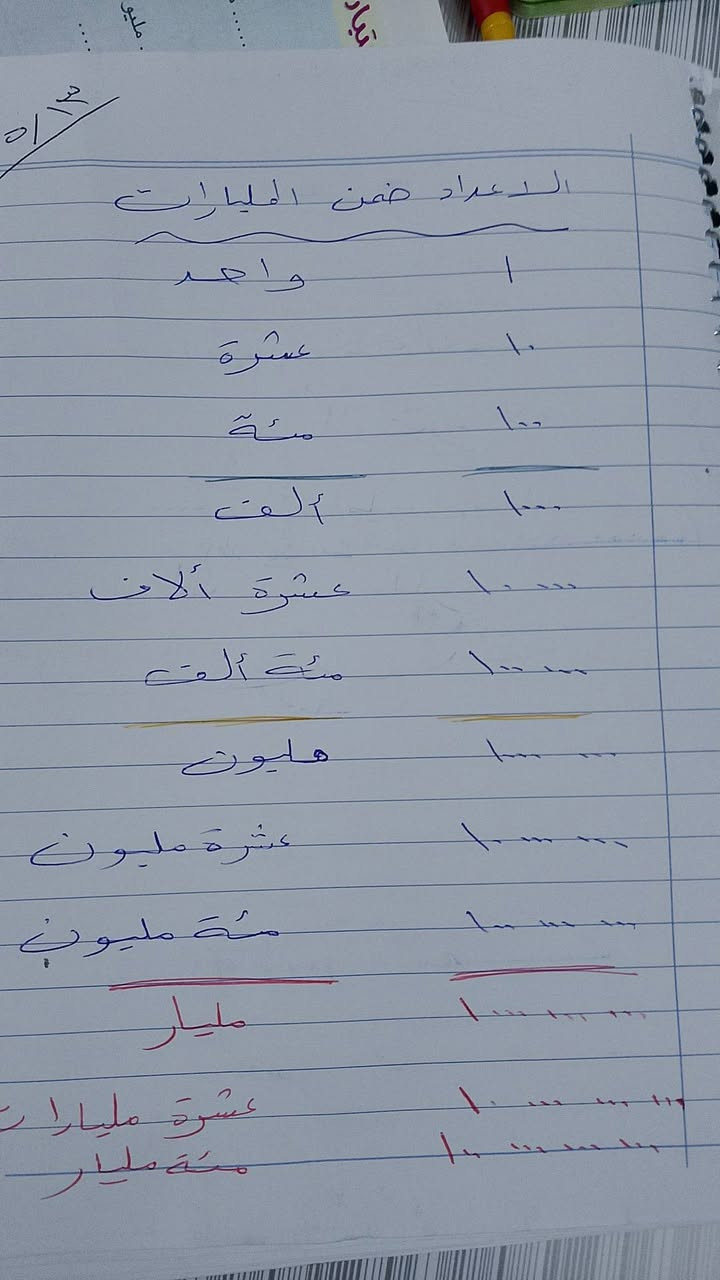 الاعداد ضمن المليارات
١ واحد
١٠ عشرة
١٠٠ مئة
١٠٠٠ ألف
١٠ ٠٠٠ عشرة ألاف
١٠٠ ٠٠٠ مئة ألف
١٠٠٠ ٠٠٠ مليون
١٠ ٠٠٠ ٠٠٠ عشرة مليون
١٠٠ ٠٠٠ ٠٠٠ مئة مليون
١ ٠٠٠ ٠٠٠ ٠٠٠ مليار
١٠ ٠٠٠ ٠٠٠ ٠٠٠ عشرة مليارات
١٠٠ ٠٠٠ ٠٠٠ ٠٠٠ مئة مليار